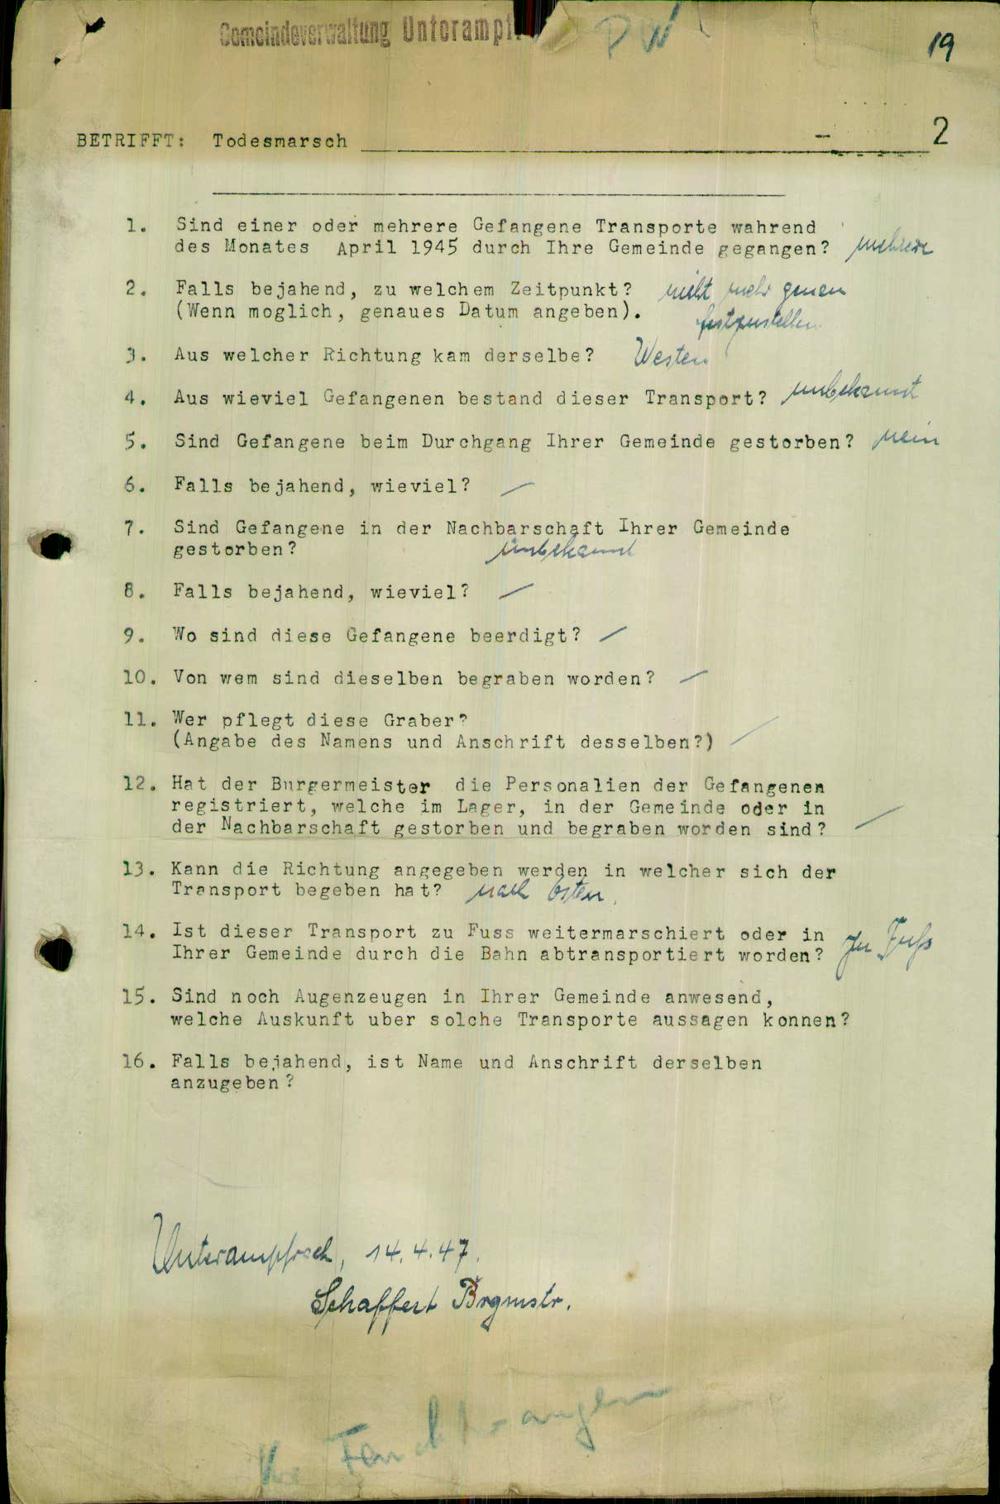 Gemeindeverwaltung Unterampf
PW
19
BETRIFFT: Todesmarsch
2
1. Sind einer oder mehrere Gefangene Transporte wahrend
des Monates April 1945 durch Ihre Gemeinde gegangen? mehrere
2. Falls bejahend, zu welchem Zeitpunkt? nicht mehr genau
(Wenn moglich, genaues Datum angeben). festzustellen
3. Aus welcher Richtung kam derselbe? Westen
4. Aus wieviel Gefangenen bestand dieser Transport? unbekannt
5. Sind Gefangene beim Durchgang Ihrer Gemeinde gestorben? nein
6. Falls bejahend, wieviel? /
7. Sind Gefangene in der Nachbarschaft Ihrer Gemeinde
gestorben? unbekannt
8. Falls bejahend, wieviel? /
9. Wo sind diese Gefangene beerdigt? /
10. Von wem sind dieselben begraben worden? /
11. Wer pflegt diese Graber?
(Angabe des Namens und Anschrift desselben?) /
12. Hat der Burgermeister die Personalien der Gefangenen
registriert, welche im Lager, in der Gemeinde oder in
der Nachbarschaft gestorben und begraben worden sind? /
13. Kann die Richtung angegeben werden in welcher sich der
Transport begeben hat? nach Osten.
14. Ist dieser Transport zu Fuss weitermarschiert oder in
Ihrer Gemeinde durch die Bahn abtransportiert worden? zu Fuß
15. Sind noch Augenzeugen in Ihrer Gemeinde anwesend,
welche Auskunft uber solche Transporte aussagen konnen?
16. Falls bejahend, ist Name und Anschrift derselben
anzugeben?
Unterampfrach, 14.4.47.
Schaffert Brgmstr.